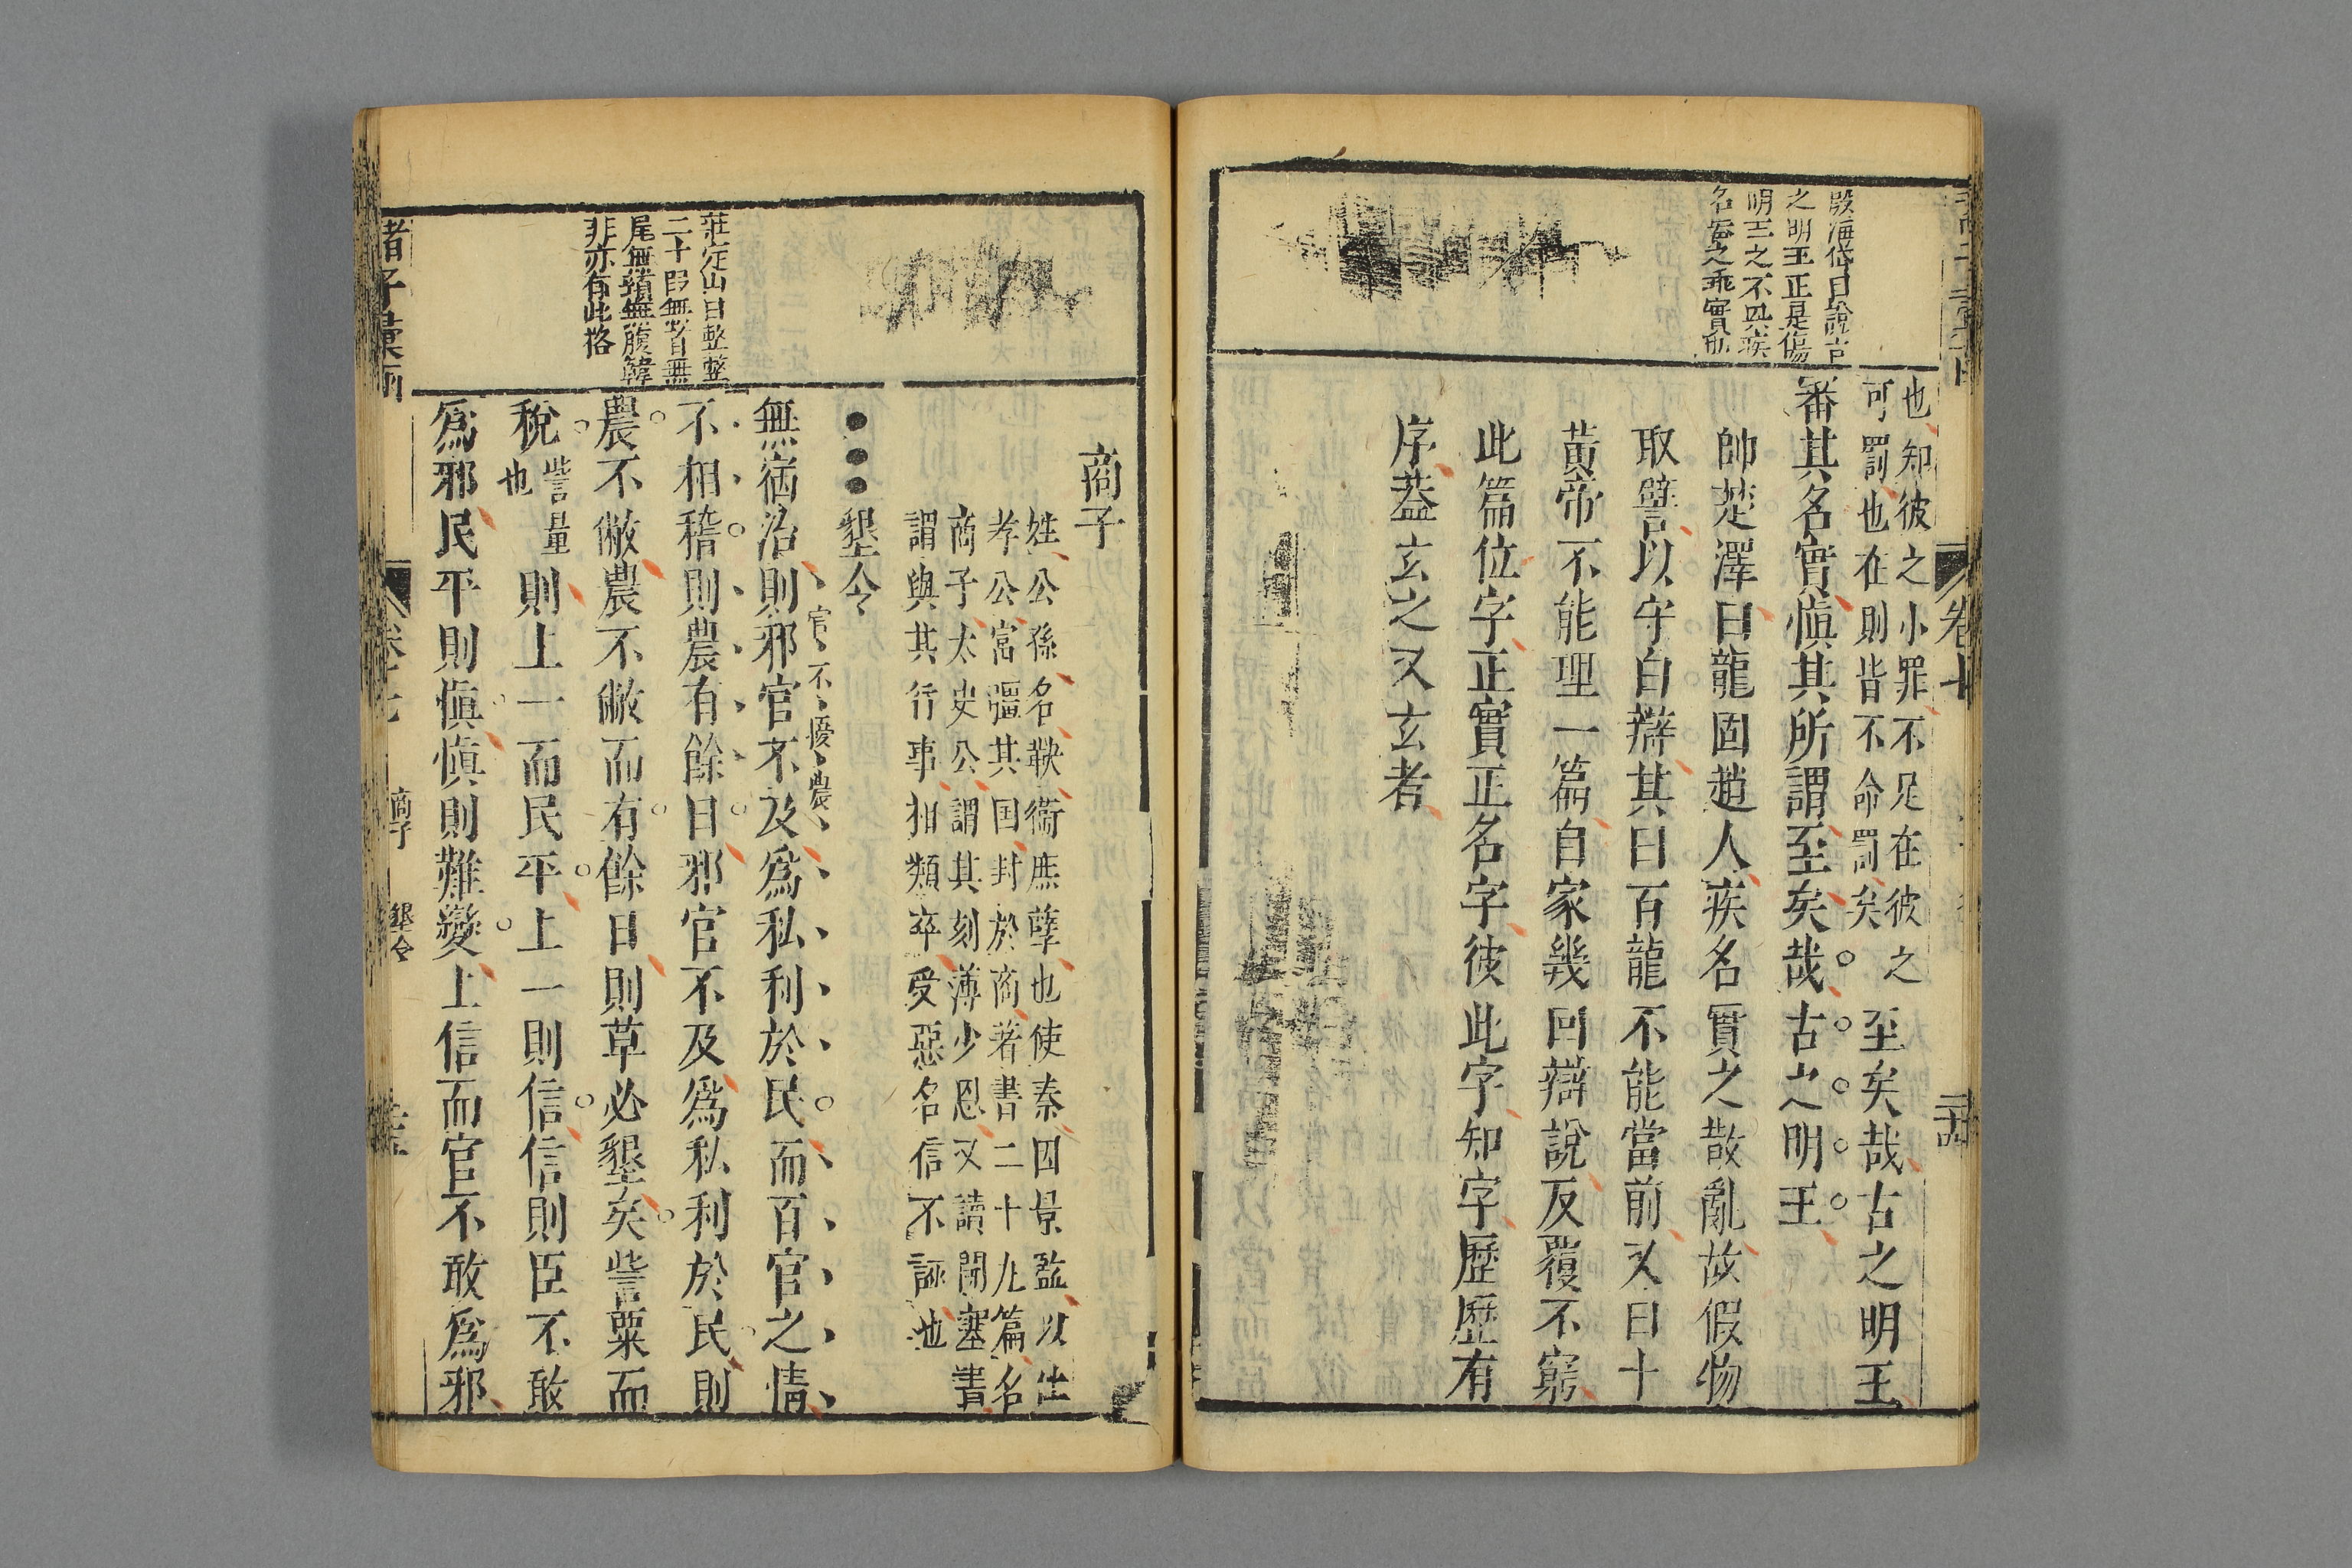 殷海岱曰論古
之明王正是傷
明王之不興疾
名實之乖實
也知彼之小罪不足在彼之
可罰也在則皆不命罰矣
至矣哉古之明王
審其名實愼其所謂至矣哉古之明王
帥楚澤曰龍固趙人疾名實之散亂故假物
取譬以守白辯其曰百龍不能當前又曰十
黃帝不能理一篇自家幾回辯說反覆不窮
此篇位字正實正名字彼此字知字歷歷有
序葢玄之又玄者
卷七
商子
姓公孫名鞅衞庶孽也使秦因景監以仕
孝公富彊其国封於商著書二十九篇名
商子太史公謂其刻薄少恩又讀開塞書
謂與其行事相類卒受惡名信不誣也
莊定山曰整整
二十段無首無
尾無頭無腹韓
非亦有此格
墾令
官不擾農
無宿治則邪官不及爲私利於民而百官之情
不相稽則農有餘日邪官不及爲私利於民則
農不敝農不敝而有餘日則草必墾矣訾粟而
稅訾量也則上一而民平上一則信信則臣不敢
爲邪民平則愼愼則難變上信而官不敢爲邪
諸子彙函
卷七
商子
墾令